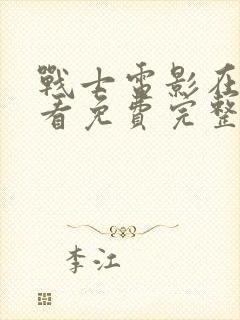 戰士雷影在
看免費完整
李江